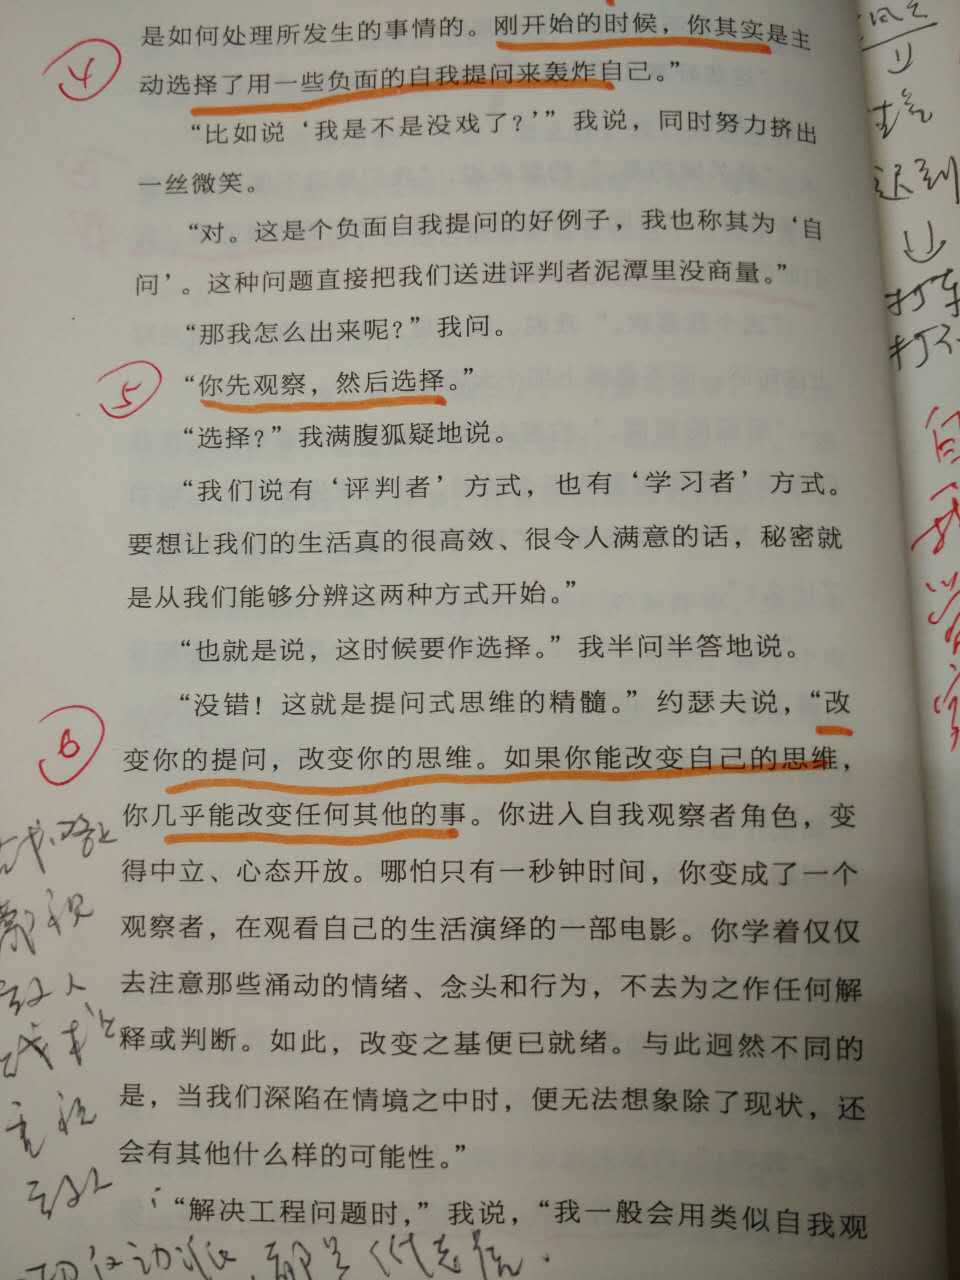 是如何处理所发生的事情的。刚开始的时候，你其实是主
④
动选择了用一些负面的自我提问来轰炸自己。”
“比如说‘我是不是没戏了？’”我说，同时努力挤出
一丝微笑。
“对。这是个负面自我提问的好例子，我也称其为‘自
问’。这种问题直接把我们送进评判者泥潭里没商量。”
“那我怎么出来呢？”我问。
⑤
“你先观察，然后选择。”
“选择？”我满腹狐疑地说。
“我们说有‘评判者’方式，也有‘学习者’方式。
要想让我们的生活真的很高效、很令人满意的话，秘密就
是从我们能够分辨这两种方式开始。”
“也就是说，这时候要作选择。”我半问半答地说。
⑥
“没错！这就是提问式思维的精髓。”约瑟夫说，“改
变你的提问，改变你的思维。如果你能改变自己的思维，
你几乎能改变任何其他的事。你进入自我观察者角色，变
得中立、心态开放。哪怕只有一秒钟时间，你变成了一个
观察者，在观看自己的生活演绎的一部电影。你学着仅仅
去注意那些涌动的情绪、念头和行为，不去为之作任何解
释或判断。如此，改变之基便已就绪。与此迥然不同的
是，当我们深陷在情境之中时，便无法想象除了现状，还
会有其他什么样的可能性。”
“解决工程问题时，”我说，“我一般会用类似自我观
战略
藐视
敌人
战术
重视
敌人
迟到
打车
自
我